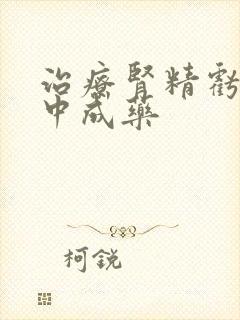 治療腎精虧
中成藥
柯銳